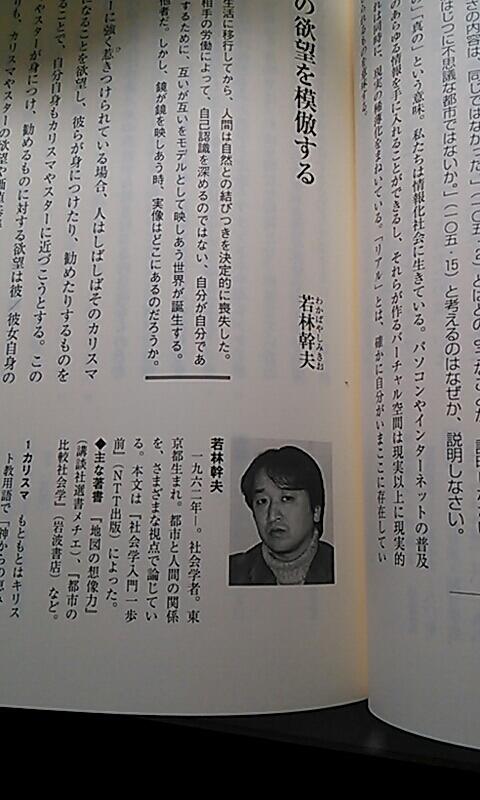 さの内容は、同じではなかった」（一〇五・3）とはどの
はじつに不思議な都市ではないか。」（一〇五・15）と考えるのはなぜか、説明しなさい。
「真の」という意味。私たちは情報化社会に生きている。パソコンやインターネットの普及
のあらゆる情報を手に入れることができるし、それらが作るバーチャル空間は現実以上に現実的
れは同時に、現実の稀薄化をまねいている。「リアル」とは、確かに自分がいまここに存在してい
の欲望を模倣する
わかばやしみきお
若林幹夫
生活に移行してから、人間は自然との結びつきを決定的に喪失した。
相手の労働によって、自己認識を深めるのではない、自分が自分であ
するために、互いが互いをモデルとして映しあう世界が誕生する。
他者だ。しかし、鏡が鏡を映しあう時、実像はどこにあるのだろうか。
ーに強く惹きつけられている場合、人はしばしばそのカリスマ
になることを欲望し、彼らが身につけたり、勧めたりするものを
ことで、自分自身もカリスマやスターに近づこうとする。この
やスターが身につけ、勧めるものに対する欲望は彼／彼女自身の
りも、カリスマやスターの欲望や価値
若林幹夫
一九六二年―。社会学者。東
京都生まれ。都市と人間の関係
を、さまざまな視点で論じてい
る。本文は『社会学入門一歩
前』（NTT出版）によった。
◆主な著書　『地図の想像力』
（講談社選書メチエ）、『都市の
比較社会学』（岩波書店）など。
1 カリスマ　もともとはキリス
ト教用語で「神からの